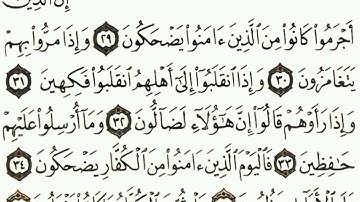 إن الذين
أَجْرَمُوا۟ كَانُوا۟ مِنَ ٱلَّذِينَ ءَامَنُوا۟ يَضْحَكُونَ ٢٩ وَإِذَا مَرُّوا۟ بِهِمْ
يَتَغَامَزُونَ ٣٠ وَإِذَا ٱنقَلَبُوٓا۟ إِلَىٰٓ أَهْلِهِمُ ٱنقَلَبُوا۟ فَكِهِينَ ٣١
وَإِذَا رَأَوْهُمْ قَالُوٓا۟ إِنَّ هَٰٓؤُلَآءِ لَضَآلُّونَ ٣٢ وَمَآ أُرْسِلُوا۟ عَلَيْهِمْ
حَٰفِظِينَ ٣٣ فَٱلْيَوْمَ ٱلَّذِينَ ءَامَنُوا۟ مِنَ ٱلْكُفَّارِ يَضْحَكُونَ ٣٤